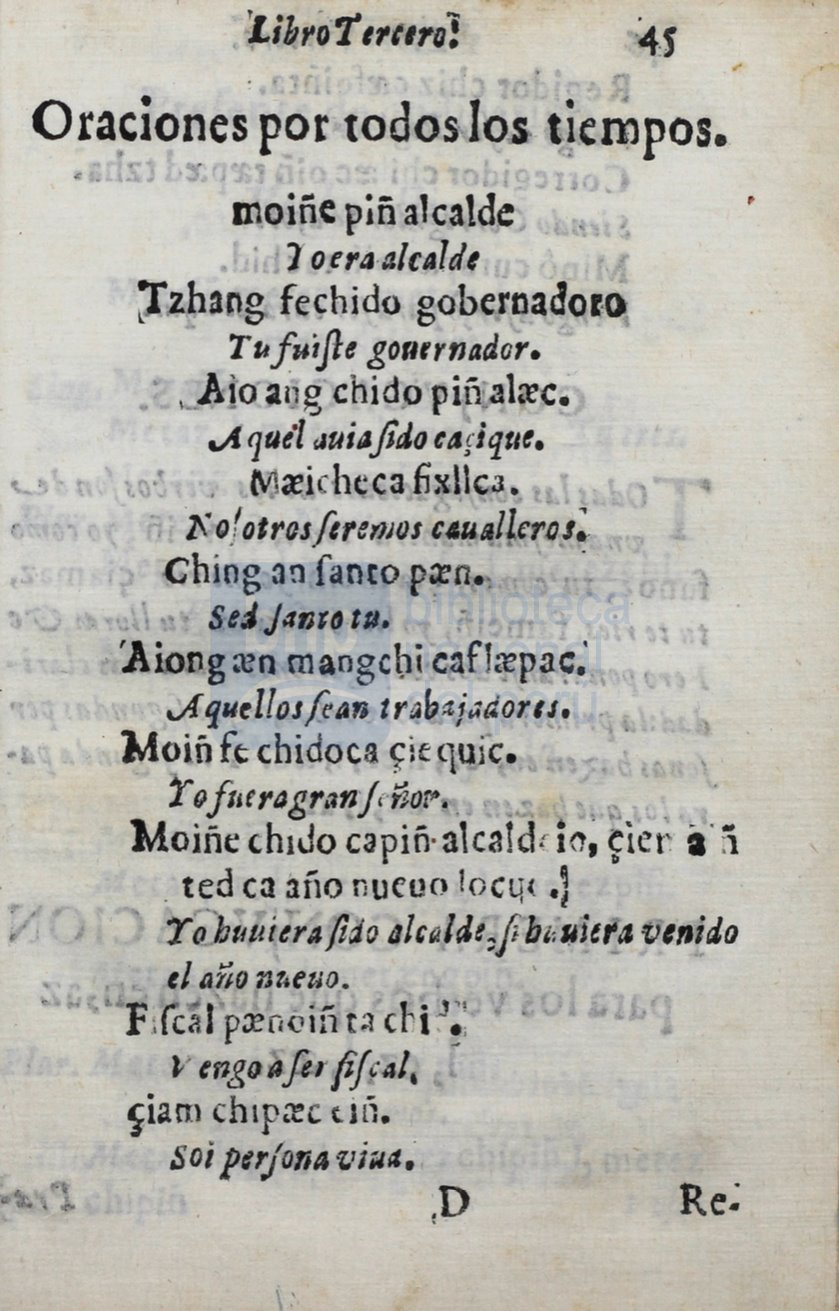 Libro Tercero. 45
Oraciones por todos los tiempos.
moiñe piñ alcalde
Yo era alcalde
Tzhang fechido gobernadoro
Tu fuiſte gouernador.
Aio ang chido piñ alæc.
Aquel auia ſido caçique.
Mæicheca fixllca.
Noſotros ſeremos caualleros.
Ching an ſanto pæn.
Sed ſanto tu.
Aiong æn mangchi caflæpæc.
Aquellos ſean trabajadores.
Moiñ fe chidoca çiequic.
Yo fuera gran ſeñor.
Moiñe chido capiñ alcaldeio, çier
ted ca año nueuo
Yo huuiera ſido alcalde, ſi huuiera venido
el año nueuo.
Fiſcal pænoiñ ta
Vengo a ſer fiſcal,
çiam chipæc eiñ.
Soi perſona viua.
D Re-